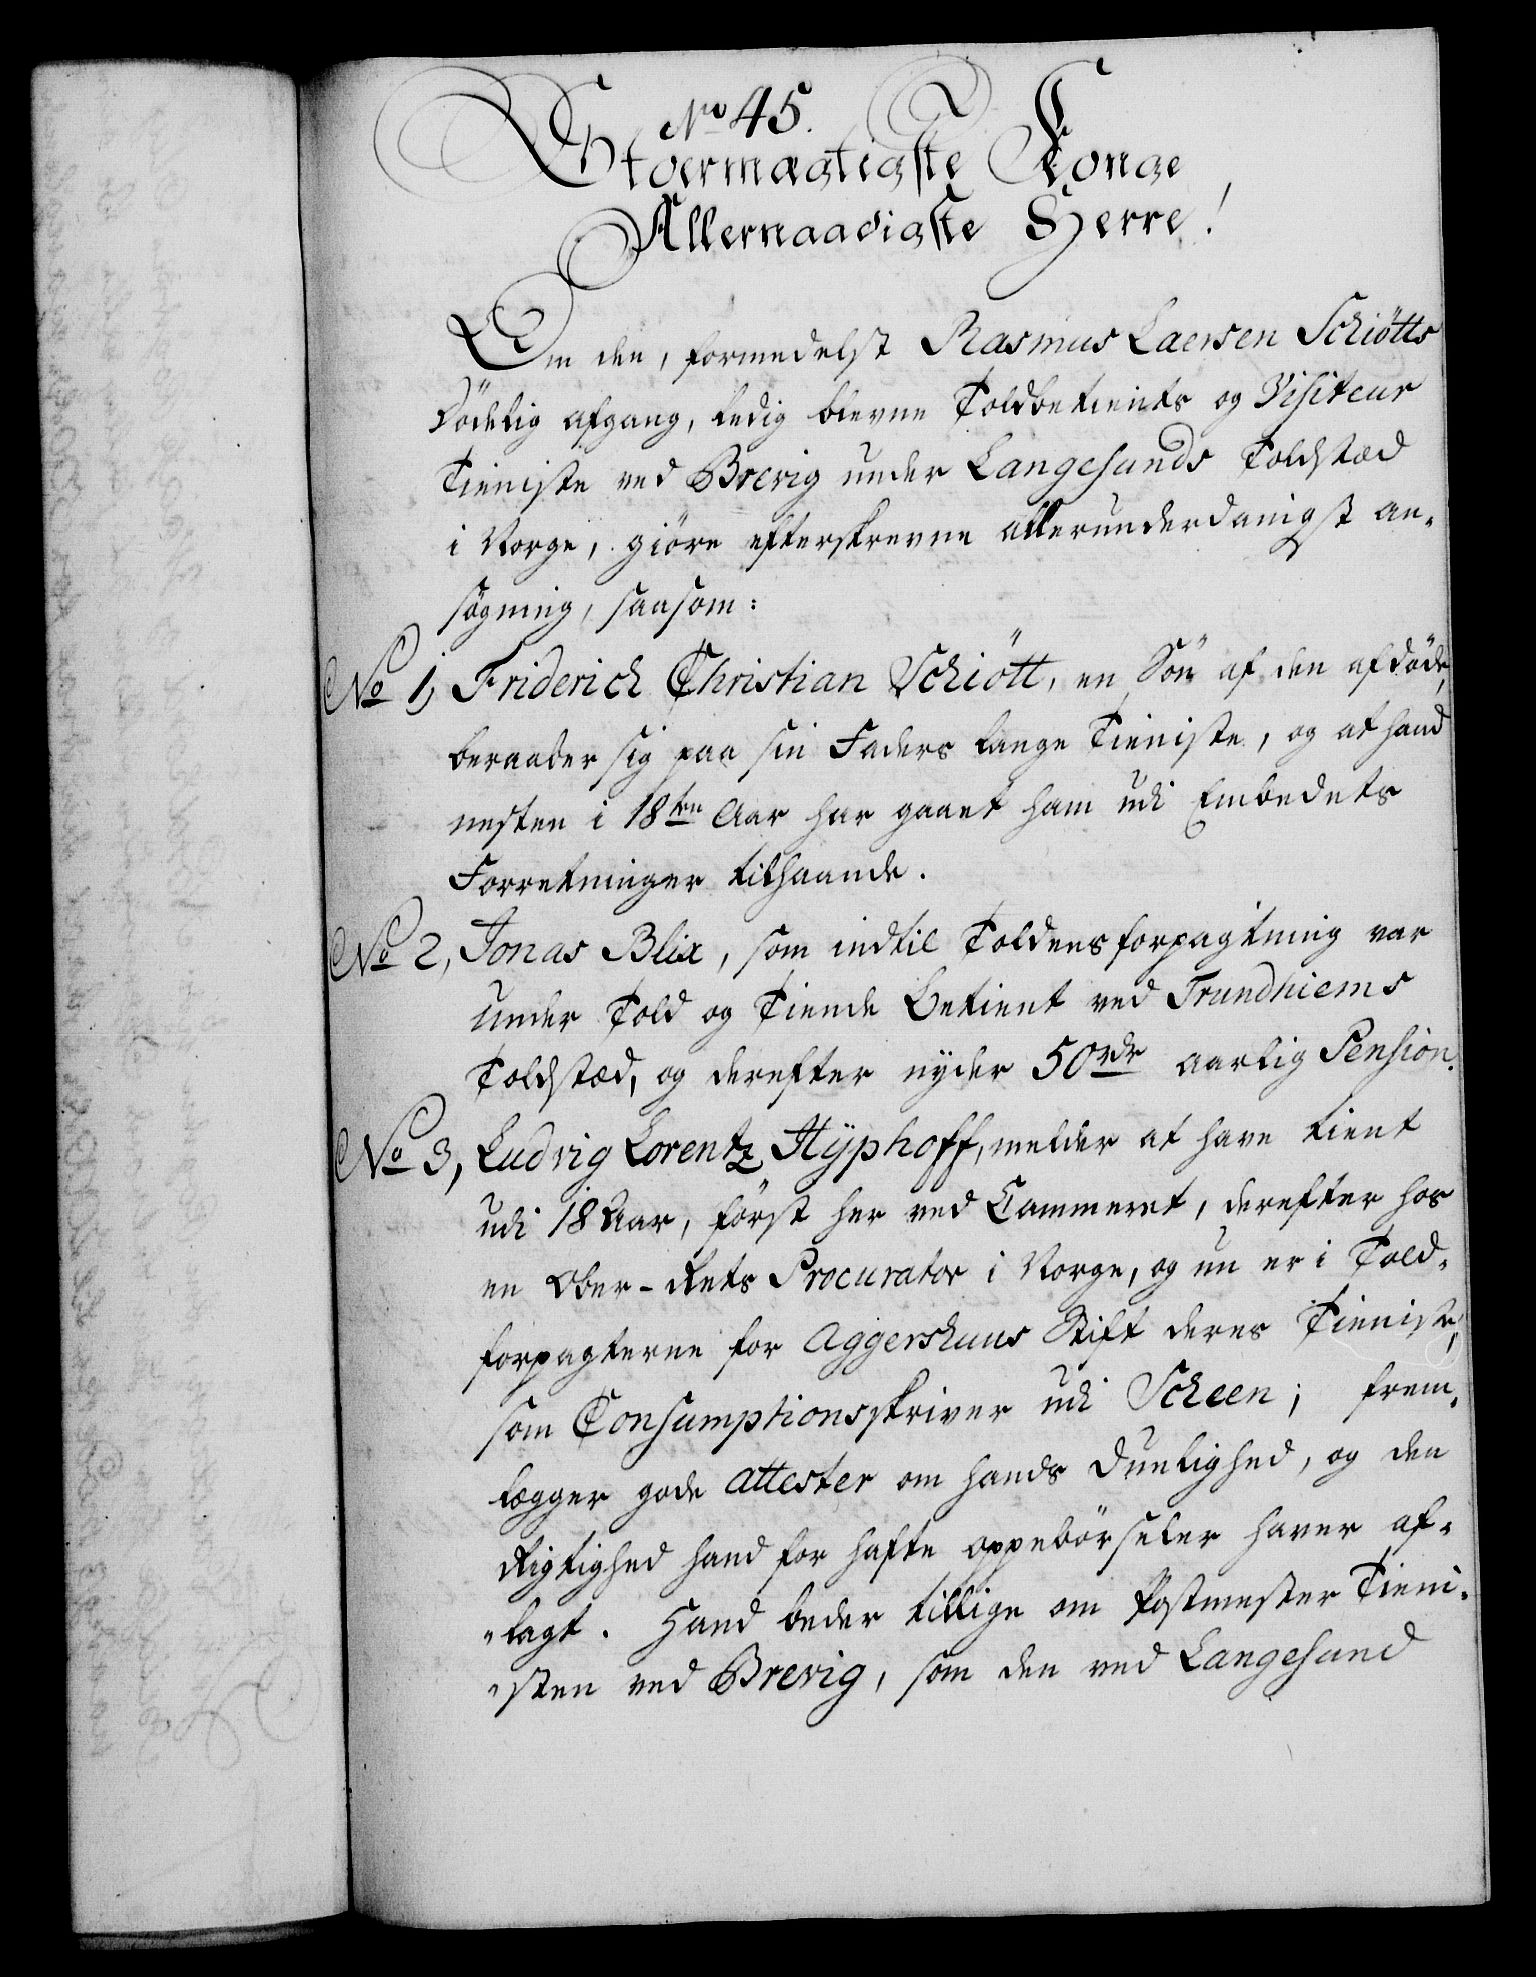 No 45.
Stoermægtigste Konge
Allernaadigste Herre!
Om den, formedelst Rasmus Laersen Schiötts
Dödelig afgang, ledig blevne Toldbetients og Visiteur
Tieniste ved Brevig under Langesunds Toldstæd
i Norge, giöre efterskrevne allerunderdanigst an-
sögning, saasom:
No 1, Friderich Christian Schiött, en Sön af den afdöde,
beraaber sig paa sin Faders lange Tieniste, og at hand
nesten i 18ten Aar har gaaet ham udi Embedets
Forretninger tilhaande.
No 2, Jonas Blix, som indtil Toldens forpagtning var
Under Told og Tiende Betient ved Trundhiems
Toldstæd, og derefter nyder 50rdr aarlig Pension.
No 3, Ludvig Lorentz Hÿphoff, melder at have tient
udi 18 Aar, först her ved Cammeret, derefter hos
en Ober-Rets Procurator i Norge, og nu er i Told-
forpagterne for Aggershuus Stift deres Tieniste,
som Consumptionsskriver udi Scheen; frem-
lægger gode Attester om hands Duelighed, og den
Rigtighed hand for hafte oppebörseler haver af-
lagt. Hand beder tillige om Postmester Tieni-
sten ved Brevig, som den ved Langesund